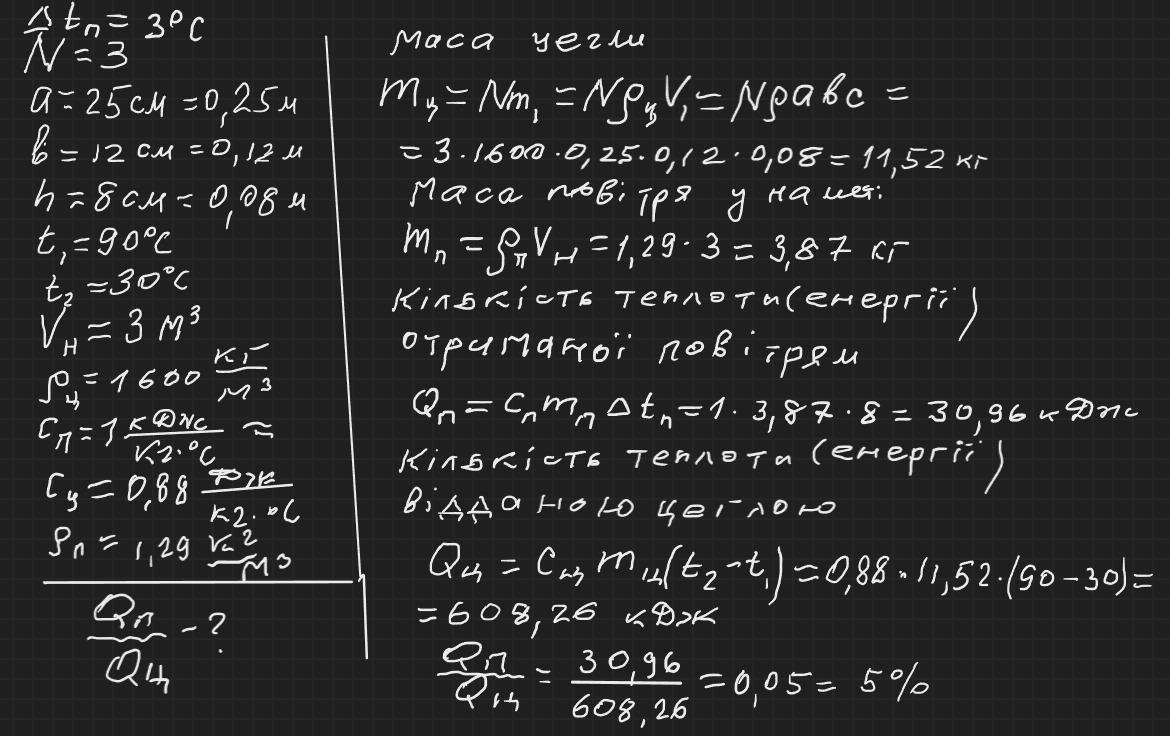 Δt_п = 3°C
N = 3
a = 25 см = 0,25 м
b = 12 см = 0,12 м
h = 8 см = 0,08 м
t₁ = 90°C
t₂ = 30°C
V_н = 3 м³
ρ_ц = 1600 кг/м³
c_п = 1 кДж/кг·°C
c_ц = 0,88 Дж/кг·°C
ρ_п = 1,29 кг/м³
Q_п/Q_ц - ?
маса цегли
m_ц = Nm₁ = Nρ_цV₁ = Nρавс =
= 3·1600·0,25·0,12·0,08 = 11,52 кг
Маса повітря у наметі:
m_п = ρ_пV_н = 1,29·3 = 3,87 кг
кількість теплоти (енергії)
отриманої повітрям
Q_п = c_п m_п Δt_п = 1·3,87·8 = 30,96 кДж
кількість теплоти (енергії)
відданою цеглою
Q_ц = c_ц m_ц(t₂-t₁) = 0,88·11,52·(90-30) =
= 608,26 кДж
Q_п/Q_ц = 30,96/608,26 = 0,05 = 5%